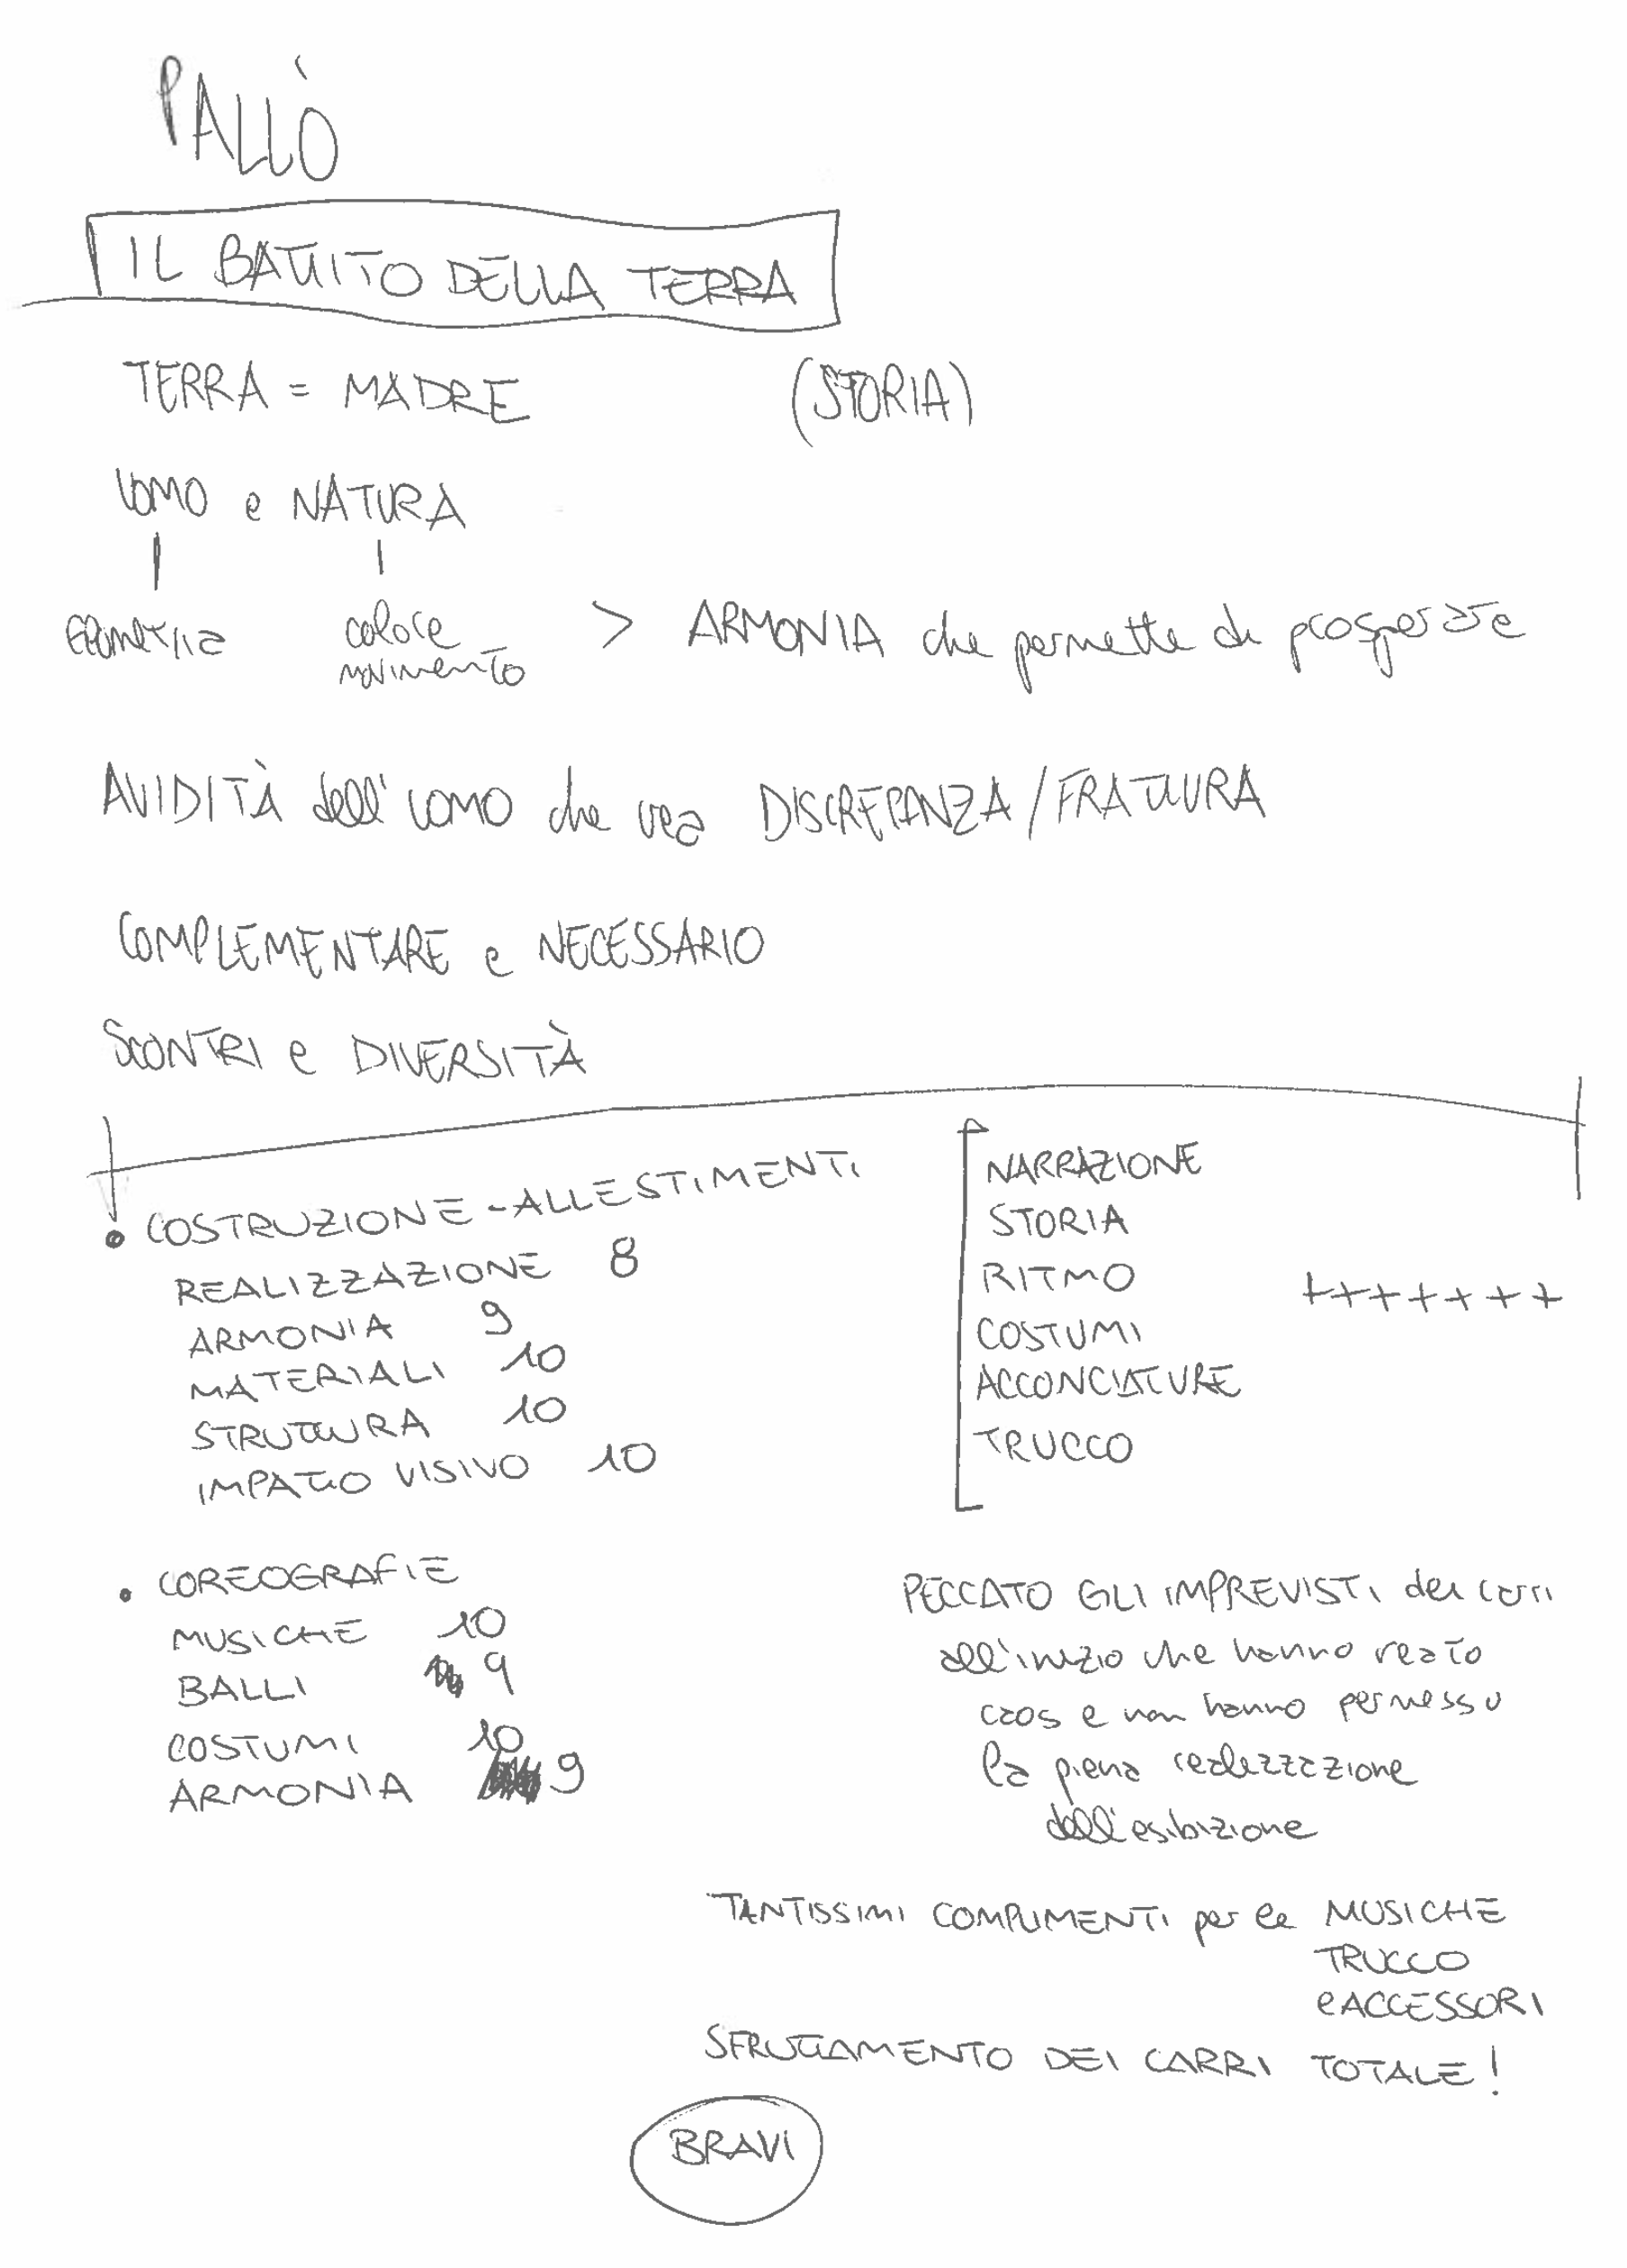 PALLÒ
IL BATTITO DELLA TERRA
TERRA = MADRE (STORIA)
UOMO e NATURA
geometria colore > ARMONIA che permette di prosperare
movimento
AVIDITÀ dell'UOMO che crea DISCREPANZA/FRATTURA
COMPLEMENTARE e NECESSARIO
SCONTRI e DIVERSITÀ
• COSTRUZIONE - ALLESTIMENTI
REALIZZAZIONE 8
ARMONIA 9
MATERIALI 10
STRUTTURA 10
IMPATTO VISIVO 10
NARRAZIONE
STORIA
RITMO +++++++
COSTUMI
ACCONCIATURE
TRUCCO
• COREOGRAFIE
MUSICHE 10
BALLI 9
COSTUMI 10
ARMONIA 9
PECCATO GLI IMPREVISTI dei carri
all'inizio che hanno creato
caos e non hanno permesso
la piena realizzazione
dell'esibizione
TANTISSIMI COMPLIMENTI per le MUSICHE
TRUCCO
e ACCESSORI
SFRUTTAMENTO DEI CARRI TOTALE!
BRAVI